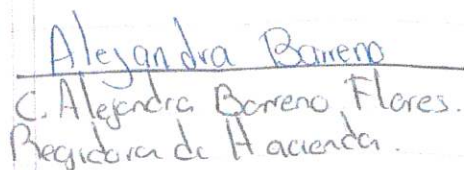 Alejandra Barreno
C. Alejandra Barreno Flores.
Regidora de Hacienda.